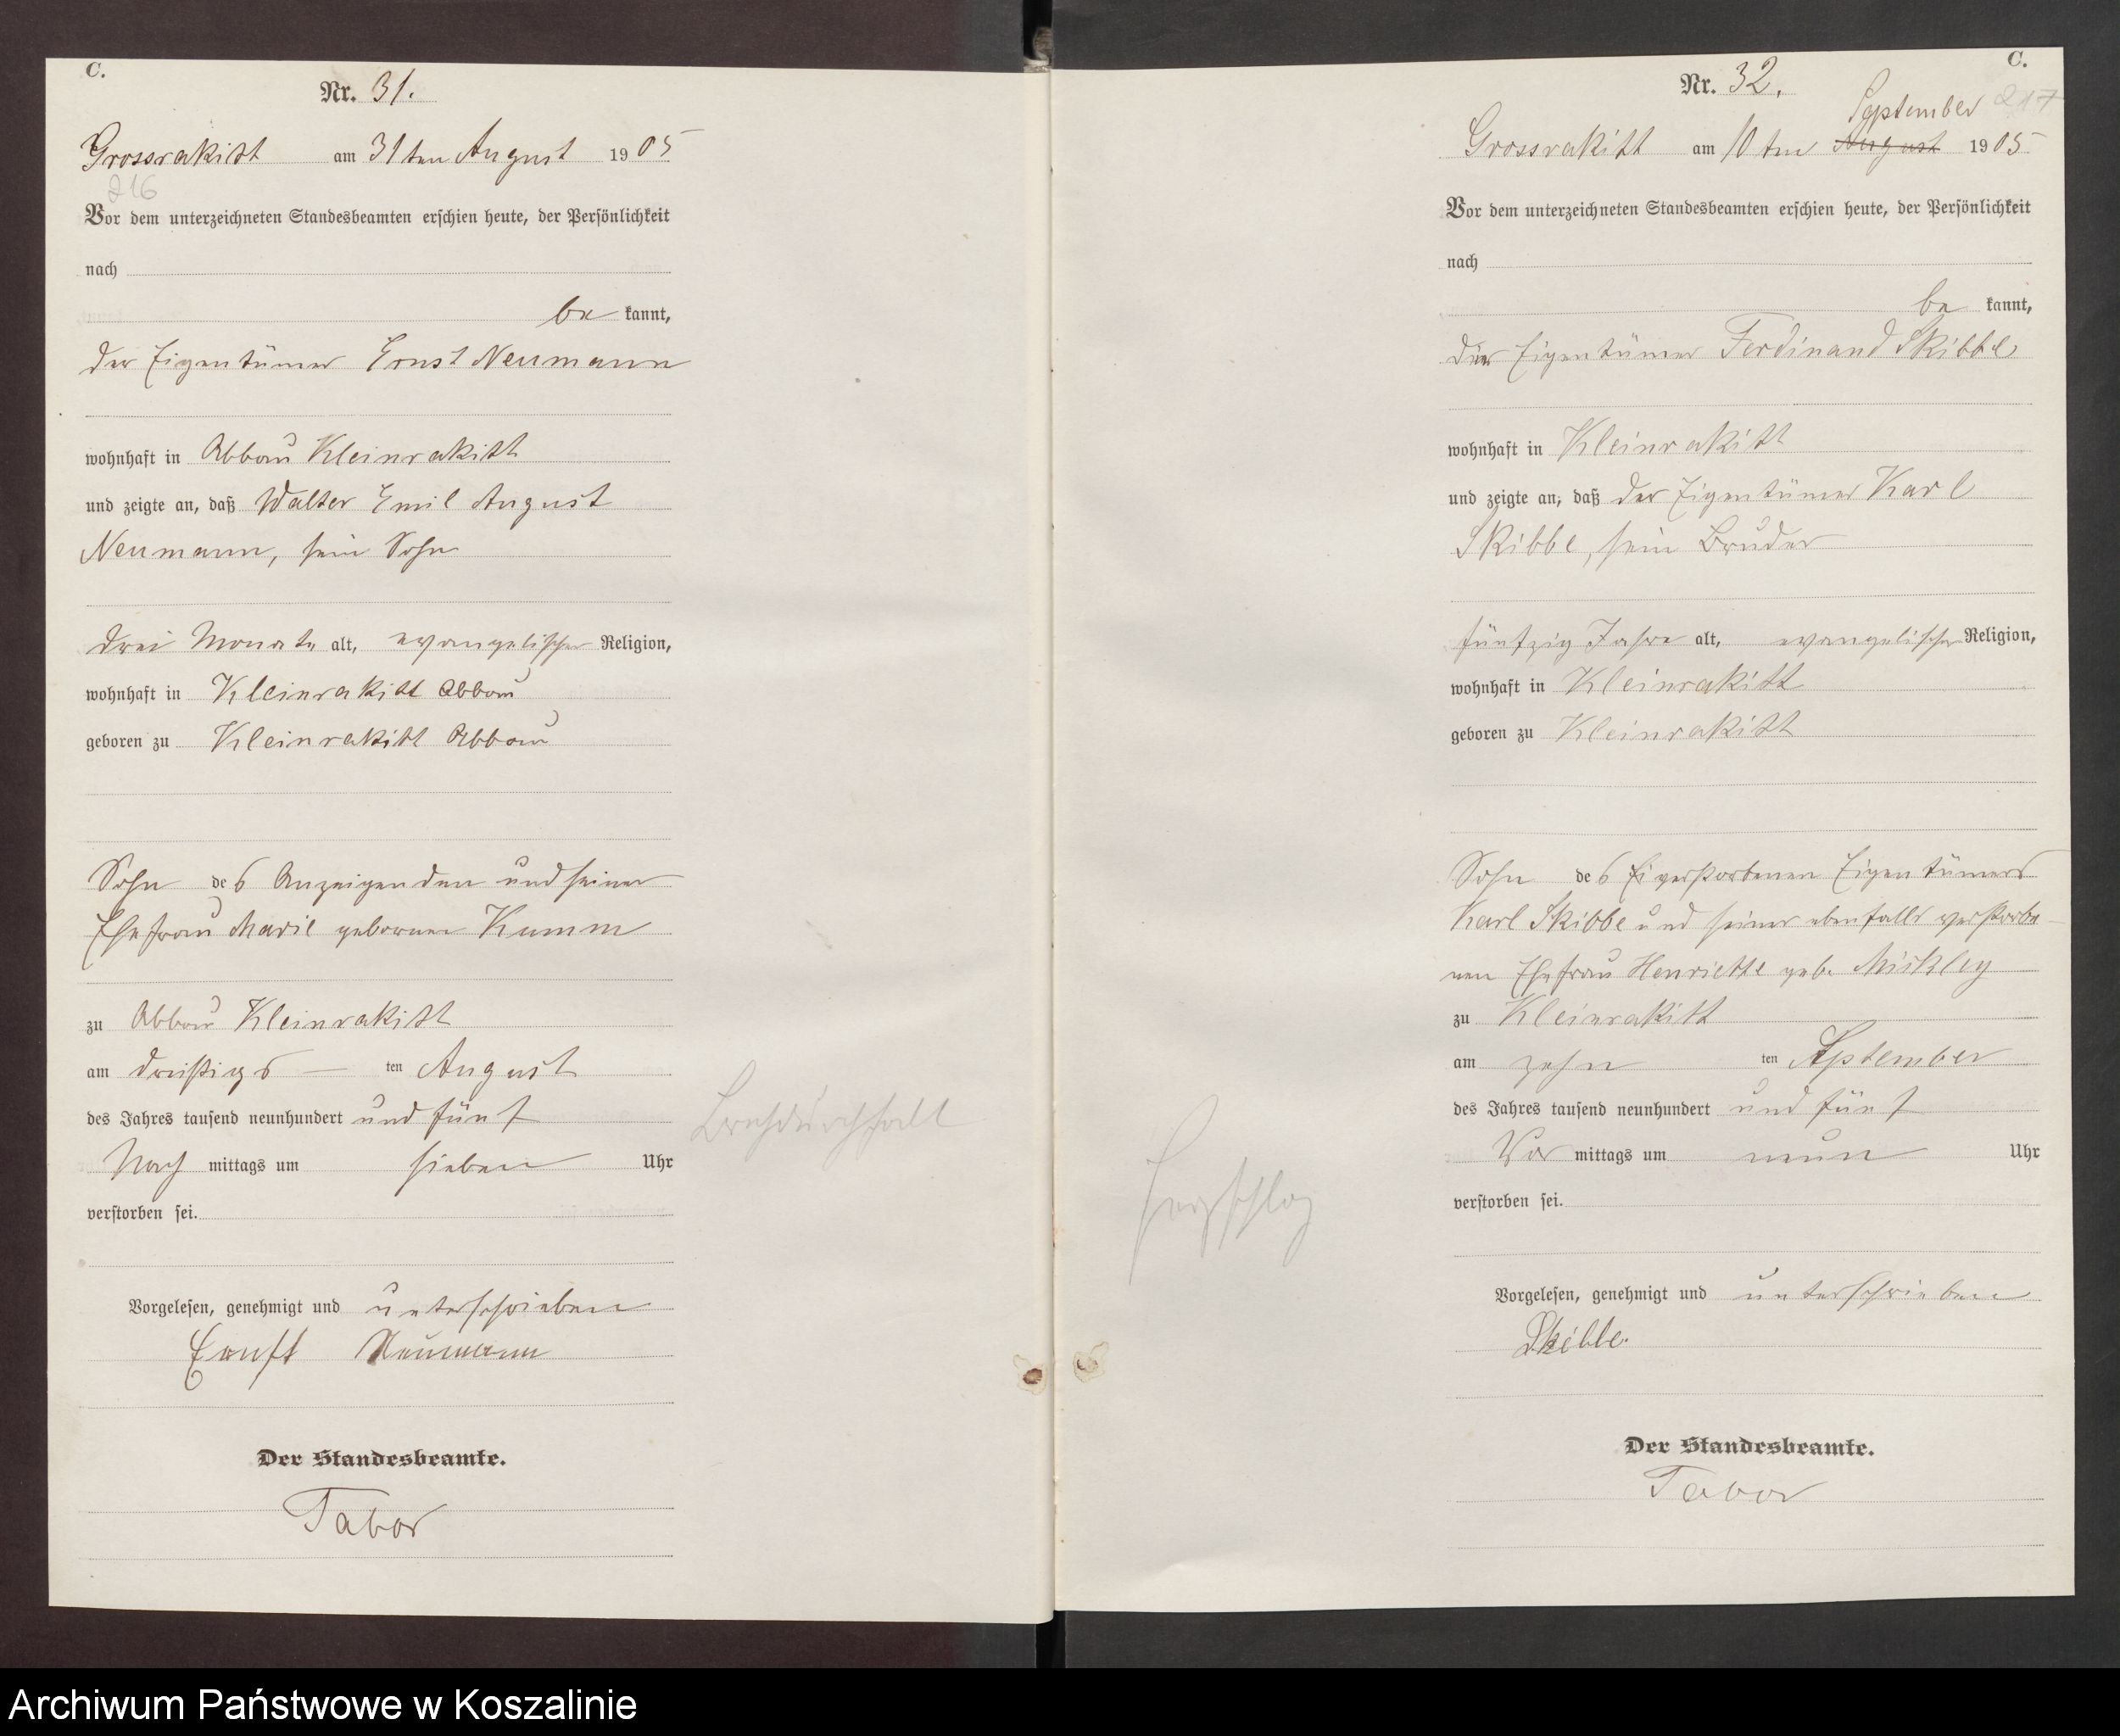 C.
Nr. 31.
Grossrakitt am 31ten August 1905
216
Vor dem unterzeichneten Standesbeamten erschien heute, der Persönlichkeit
nach
be kannt,
der Eigentümer Ernst Neumann
wohnhaft in Abbau Kleinrakitt
und zeigte an, daß Walter Emil August
Neumann, sein Sohn
drei Monate alt, evangelischer Religion,
wohnhaft in Kleinrakitt Abbau
geboren zu Kleinrakitt Abbau
Sohn des Anzeigenden und seiner
Ehefrau Marie geborenen Kumm
zu Abbau Kleinrakitt
am dreißigs ten August
des Jahres tausend neunhundert und fünf
Nach mittags um sieben Uhr
verstorben sei.
Brechdurchfall
Vorgelesen, genehmigt und unterschrieben
Ernst Neumann
Der Standesbeamte.
Tabor
C.
Nr. 32.
217
September
Grossrakitt am 10ten August 1905
Vor dem unterzeichneten Standesbeamten erschien heute, der Persönlichkeit
nach
be kannt,
der Eigentümer Ferdinand Skibbe
wohnhaft in Kleinrakitt
und zeigte an, daß der Eigentümer Karl
Skibbe, sein Bruder
fünfzig Jahre alt, evangelischer Religion,
wohnhaft in Kleinrakitt
geboren zu Kleinrakitt
Sohn des verstorbenen Eigentümers
Karl Skibbe und seiner ebenfalls verstorbe
nen Ehefrau Henriette geb. Miskley
zu Kleinrakitt
am zehn ten September
des Jahres tausend neunhundert und fünf
Vor mittags um neun Uhr
verstorben sei.
Herzschlag
Vorgelesen, genehmigt und unterschrieben
Skibbe.
Der Standesbeamte.
Tabor
Archiwum Państwowe w Koszalinie